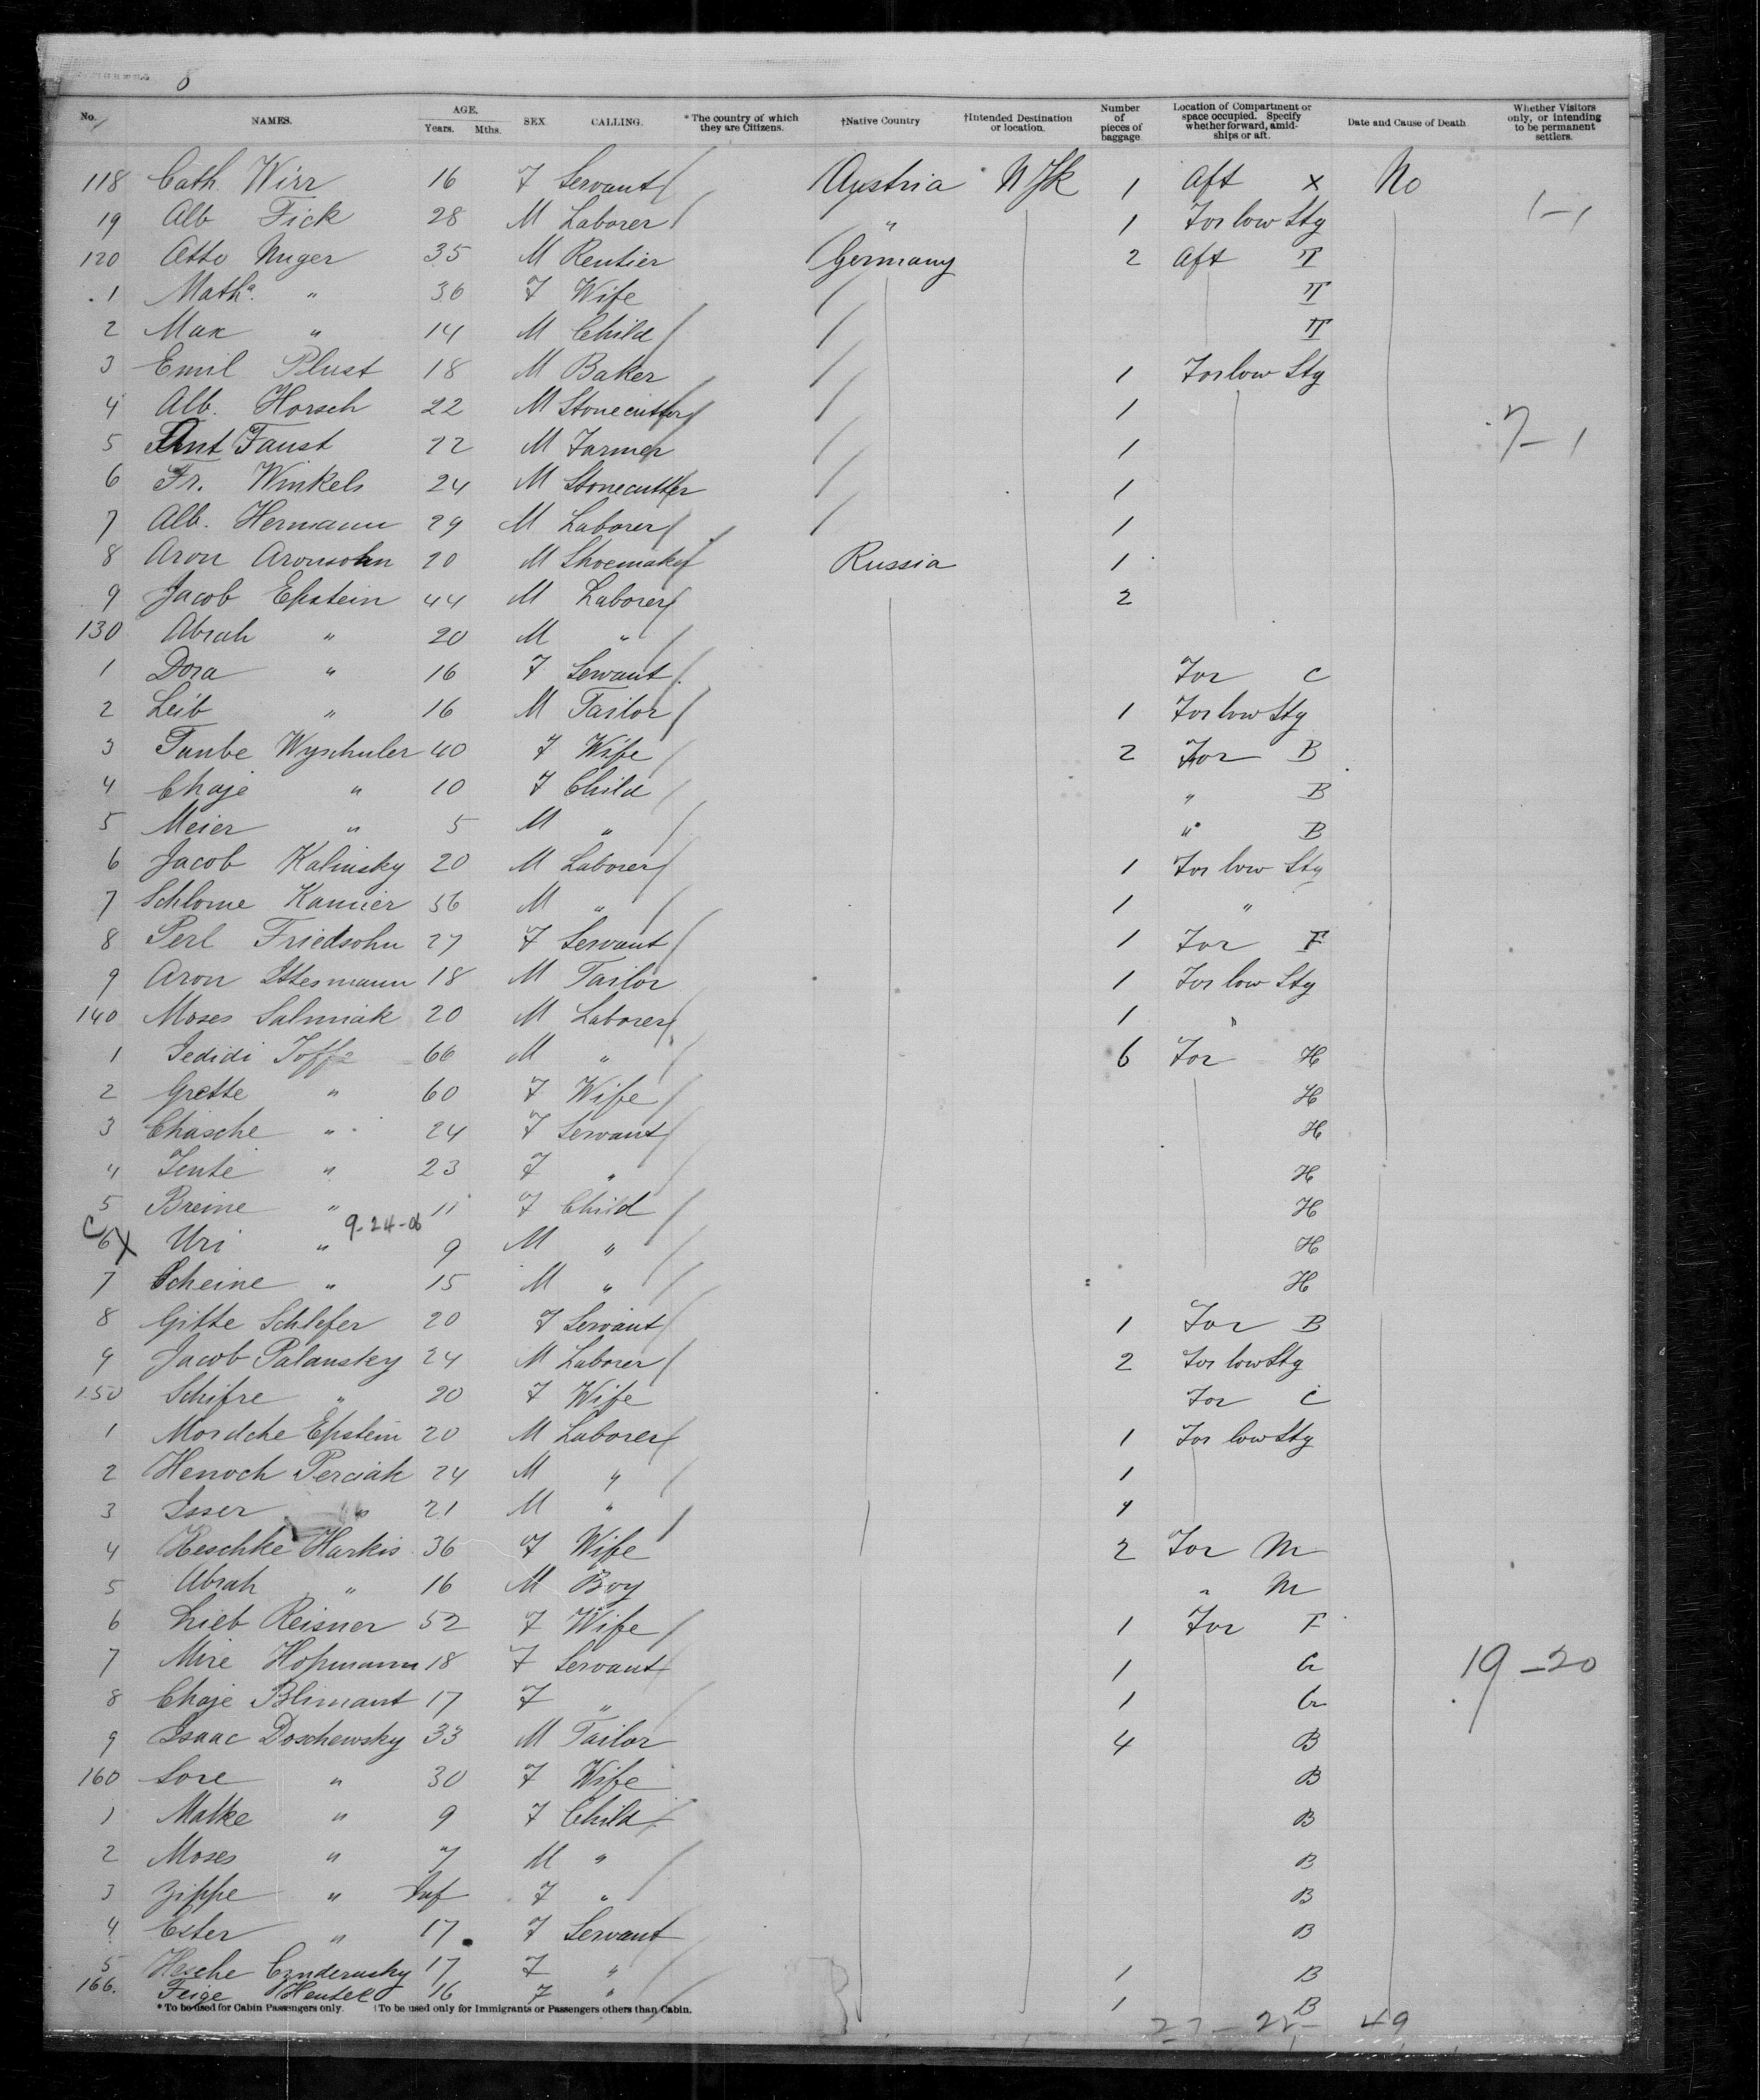 No. NAMES. AGE. Years. Mths. SEX CALLING. *The country of which they are Citizens. †Native Country †Intended Destination or location. Number of pieces of baggage Location of Compartment or space occupied. Specify whether forward, amidships or aft. Date and Cause of Death Whether Visitors only, or intending to be permanent settlers.
118 Cath. Wirr 16 F Servant Austria N Yk 1 Aft X No
19 Alb Fick 28 M Laborer " 1 For low Stg 1-1
120 Otto Nuger 35 M Rentier Germany 2 Aft T
1 Matha. " 36 F Wife T
2 Max " 14 M Child T
3 Emil Plust 18 M Baker 1 For low Stg
4 Alb. Horsch 22 M Stonecutter 1
5 Ant Faust 22 M Farmer 1 7-1
6 Fr. Winkels 24 M Stonecutter 1
7 Alb. Hermann 29 M Laborer 1
8 Aron Aronsohn 20 M Shoemaker Russia 1
9 Jacob Epstein 44 M Laborer 2
130 Abrah " 20 M "
1 Dora " 16 F Servant For C
2 Leib " 16 M Tailor 1 For low Stg
3 Taube Wyschuler 40 F Wife 2 For B
4 Chaje " 10 F Child " B
5 Meier " 5 M " " B
6 Jacob Kalinsky 20 M Laborer 1 For low Stg
7 Schlome Kanner 56 M " 1 "
8 Perl Friedsohn 27 F Servant 1 For F
9 Aron Ittesmann 18 M Tailor 1 For low Stg
140 Moses Salmiak 20 M Laborer 1 "
1 Jedidi Joffe 66 M " 6 For H
2 Grette " 60 F Wife H
3 Chasche " 24 F Servant H
4 Jente " 23 F " H
5 Breine " 11 F Child H
C 6 X Uri " 9-24-06 9 M " H
7 Scheine " 15 M " H
8 Gitte Schlefer 20 F Servant 1 For B
9 Jacob Palansky 24 M Laborer 2 For low Stg
150 Schifre " 20 F Wife For C
1 Mordche Epstein 20 M Laborer 1 For low Stg
2 Henoch Perciak 24 M " 1
3 Isser " 21 M "
4 Heschke Harkis 36 F Wife 2 For M
5 Abrah " 16 M Boy " M
6 Lieb Reisner 52 F Wife 1 For F
7 Mire Hopmann 18 F Servant 1 G 19-20
8 Chaje Blimant 17 F " 1 G
9 Isaac Doschewsky 33 M Tailor 4 B
160 Sore " 30 F Wife B
1 Malke " 9 F Child B
2 Moses " 7 M " B
3 Zippe " Inf F " B
4 Ester " 17 F Servant B
5 Hesche 17 F " 1 B
166. Feige 16 F " 1 B
*To be used for Cabin Passengers only. †To be used only for Immigrants or Passengers others than Cabin.
49